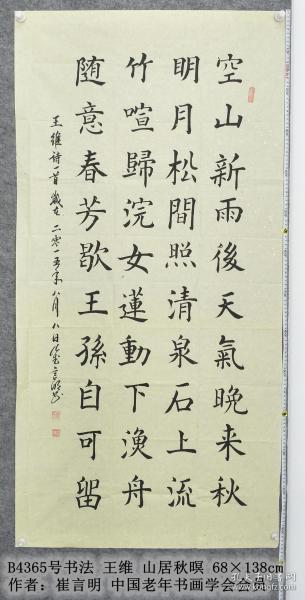 空山新雨後天氣晚来秋
明月松間照清泉石上流
竹喧歸浣女蓮動下漁舟
随意春芳歇王孫自可留
王維诗一首歲在二零一五年八月八日
B4365号书法 王维 山居秋暝 68×138cm
作者：崔言明 中国老年书画学会会员